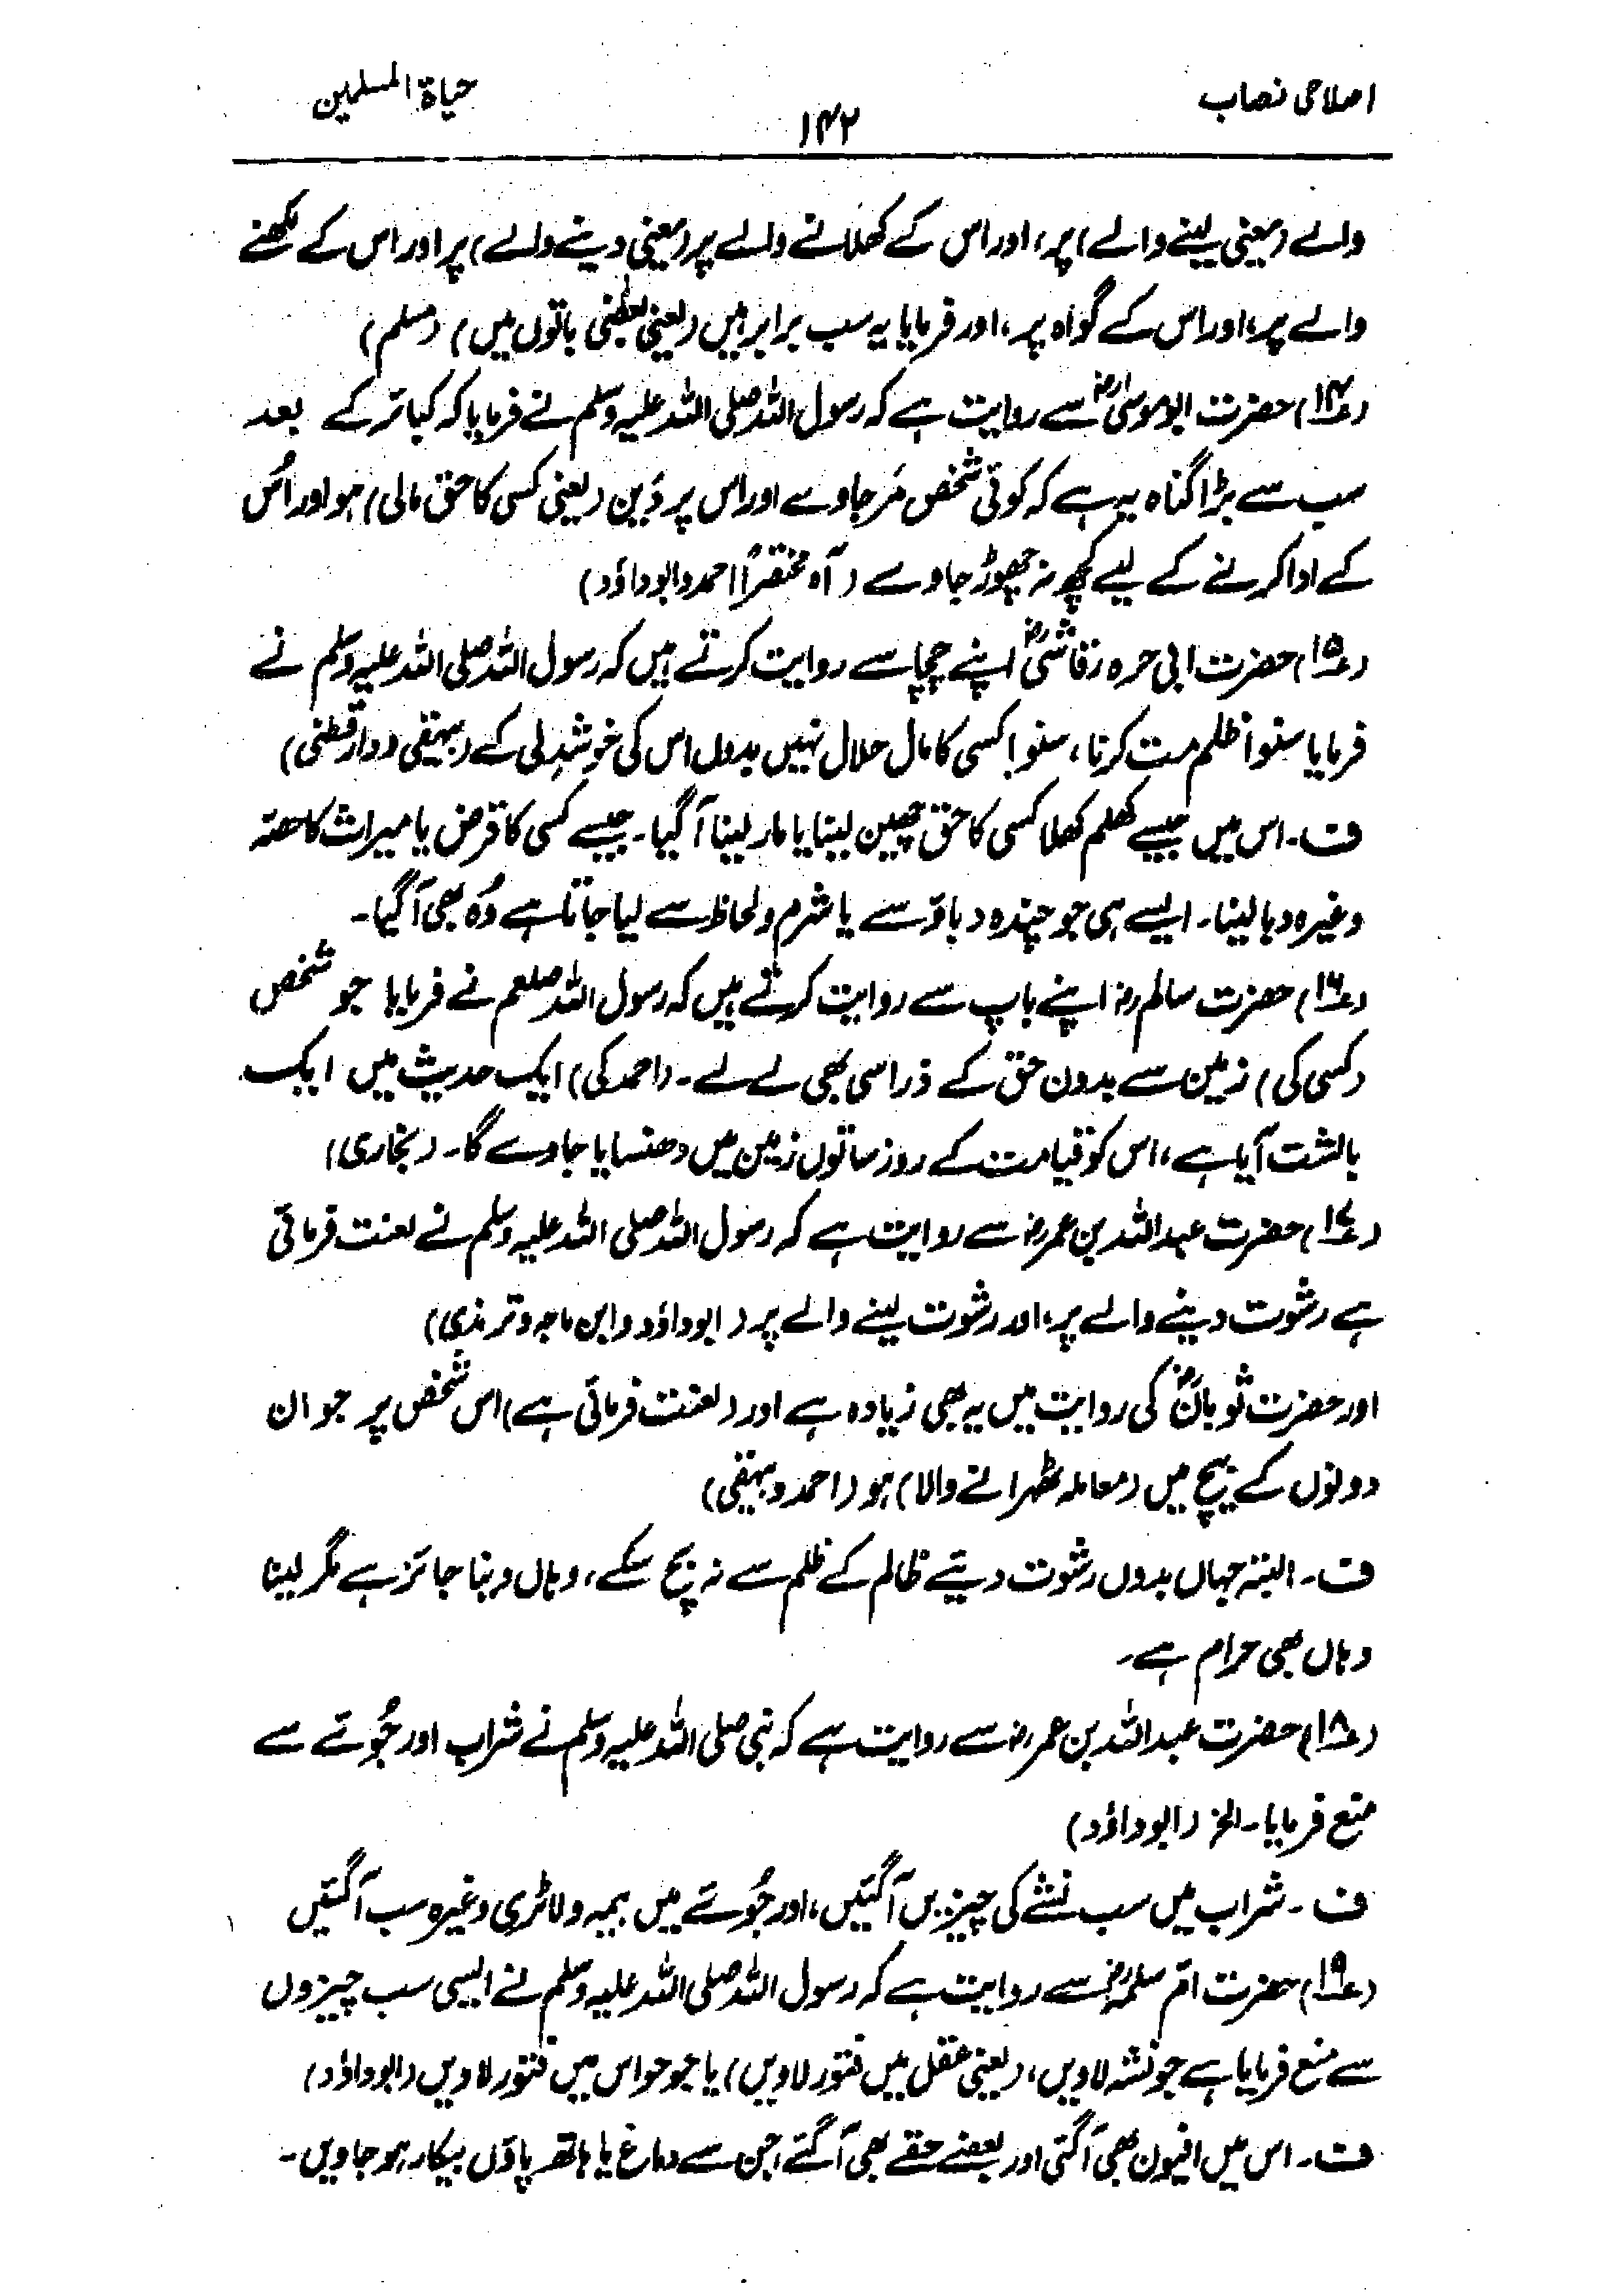 اصلاحی نصاب
۱۴۲
حیاۃ المسلمین
والے (یعنی لینے والے) پر، اور اس کے کھلانے والے پر (یعنی دینے والے) پر اور اس کے لکھنے
والے پر، اور اس کے گواہ پر، اور فرمایا یہ سب برابر ہیں (یعنی بعضی باتوں میں) (مسلم)
(۱۴) حضرت ابو موسیٰؓ سے روایت ہے کہ رسول اللہ صلی اللہ علیہ وسلم نے فرمایا کہ کبائر کے بعد
سب سے بڑا گناہ یہ ہے کہ کوئی شخص مَر جاوے اور اس پر دَین (یعنی کسی کا حق مالی) ہو اور اُس
کے ادا کرنے کے لیے کچھ نہ چھوڑ جاوے (آہ مختصراً احمد و ابوداؤد)
(۱۵) حضرت ابی حرہ رقاشیؓ اپنے چچا سے روایت کرتے ہیں کہ رسول اللہ صلی اللہ علیہ وسلم نے
فرمایا سنو! ظلم مت کرنا، سنو! کسی کا مال حلال نہیں بدوں اس کی خوشدلی کے (بیہقی و دارقطنی)
ف۔ اس میں جیسے کھلم کھلا کسی کا حق چھین لینا یا مار لینا آگیا۔ جیسے کسی کا قرض یا میراث کا حصّہ
وغیرہ دبا لینا۔ ایسے ہی جو چندہ دباؤ سے یا شرم و لحاظ سے لیا جاتا ہے وُہ بھی آگیا۔
(۱۶) حضرت سالم رضہ اپنے باپ سے روایت کرتے ہیں کہ رسول اللہ صلعم نے فرمایا جو شخص
(کسی کی) زمین سے بدون حق کے ذرا سی بھی لے لے۔ (احمد کی) ایک حدیث میں ایک
بالشت آیا ہے، اس کو قیامت کے روز ساتوں زمین میں دھنسایا جاوے گا۔ (بخاری)
(۱۷) حضرت عبداللہ بن عمر رضہ سے روایت ہے کہ رسول اللہ صلی اللہ علیہ وسلم نے لعنت فرمائی
ہے رشوت دینے والے پر، اور رشوت لینے والے پر (ابوداؤد و ابن ماجہ و ترمذی)
اور حضرت ثوبانؓ کی روایت میں یہ بھی زیادہ ہے اور (لعنت فرمائی ہے) اس شخص پر جو ان
دونوں کے بیچ میں (معاملہ ٹھہرانے والا) ہو (احمد و بیہقی)
ف۔ البتہ جہاں بدوں رشوت دیئے ظالم کے ظلم سے نہ بچ سکے، وہاں دینا جائز ہے مگر لینا
وہاں بھی حرام ہے۔
(۱۸) حضرت عبداللہ بن عمر رضہ سے روایت ہے کہ نبی صلی اللہ علیہ وسلم نے شراب اور جُوئے سے
منع فرمایا۔ الخ (ابوداؤد)
ف۔ شراب میں سب نشے کی چیزیں آگئیں، اور جُوئے میں بیمہ و لاٹری وغیرہ سب آگئیں
(۱۹) حضرت امّ سلمہؓ سے روایت ہے کہ رسول اللہ صلی اللہ علیہ وسلم نے ایسی سب چیزوں
سے منع فرمایا ہے جو نشہ لاویں، (یعنی عقل میں فتور لاویں) یا جو حواس میں فتور لاویں (ابوداؤد)
ف۔ اس میں افیون بھی آگئی اور بعضے حقے بھی آگئے جن سے دماغ یا ہاتھ پاؤں بیکار ہو جاویں۔